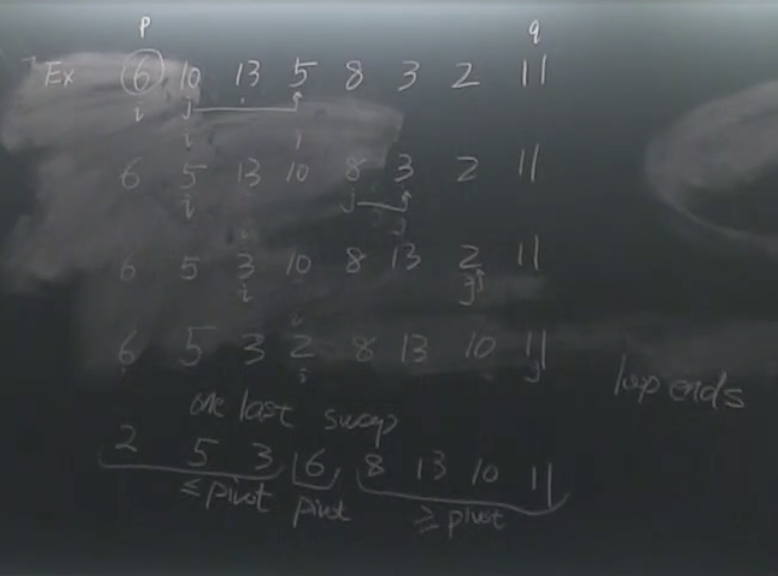 p q
Ex 6 10 13 5 8 3 2 11
i j
i
6 5 13 10 8 3 2 11
i j
6 5 3 10 8 13 2 11
i j
6 5 3 2 8 13 10 11
i j
loop ends
one last swap
2 5 3 6 8 13 10 11
≤ pivot pivot ≥ pivot